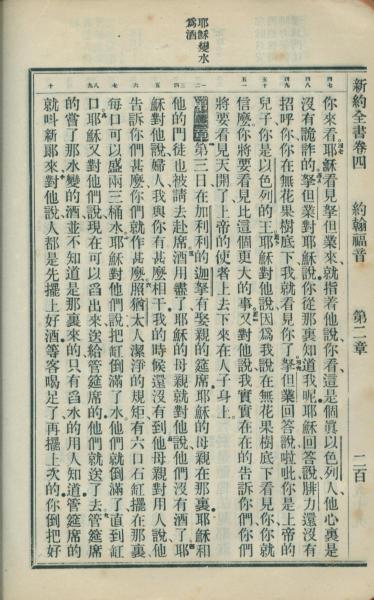 新約全書卷四　約翰福音　第二章　二百
耶穌變水爲酒
你來看耶穌看見拏但業來就指着他說你看這是個眞以色列人他心裏是
沒有詭詐的拏但業對耶穌說你從那裏知道我呢耶穌回答說腓力還沒有
招呼你你在無花果樹底下我就看見你了拏但業回答說啦吡你是上帝的
兒子你是以色列的王耶穌對他說因爲我說在無花果樹底下看見你你就
信麽你將要看見比這個更大的事又對他說我實實在在的告訴你們你們
將要看見天開了上帝的使者上去下來在人子身上
第二章第三日在加利利的迦拏有娶親的筵席耶穌的母親在那裏耶穌和
他的門徒也被請去赴席酒用盡了耶穌的母親就對他說他們沒有酒了耶
穌對他說婦人我與你有甚麽相干我的時候還沒有到他母親對用人說他
告訴你們甚麽你們就作甚麽照猶太人潔淨的規矩有六口石缸擺在那裏
每口可以盛兩三桶水耶穌對他們說把缸倒滿了水他們就倒滿了直到缸
口耶穌又對他們說現在可以舀出來送給管筵席的他們就送了去管筵席
的嘗了那水變的酒並不知道是那裏來的只有舀水的用人知道管筵席的
就呌新郎來對他說人都是先擺上好酒等客喝足了再擺上次的你倒把好